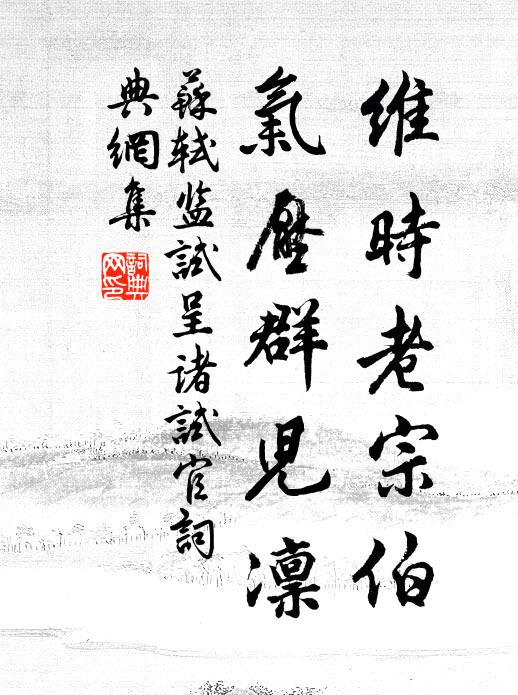 維時老宗伯
氣壓群兒凛
蘇軾监試呈诸試官詞
典網集
詞典
网印